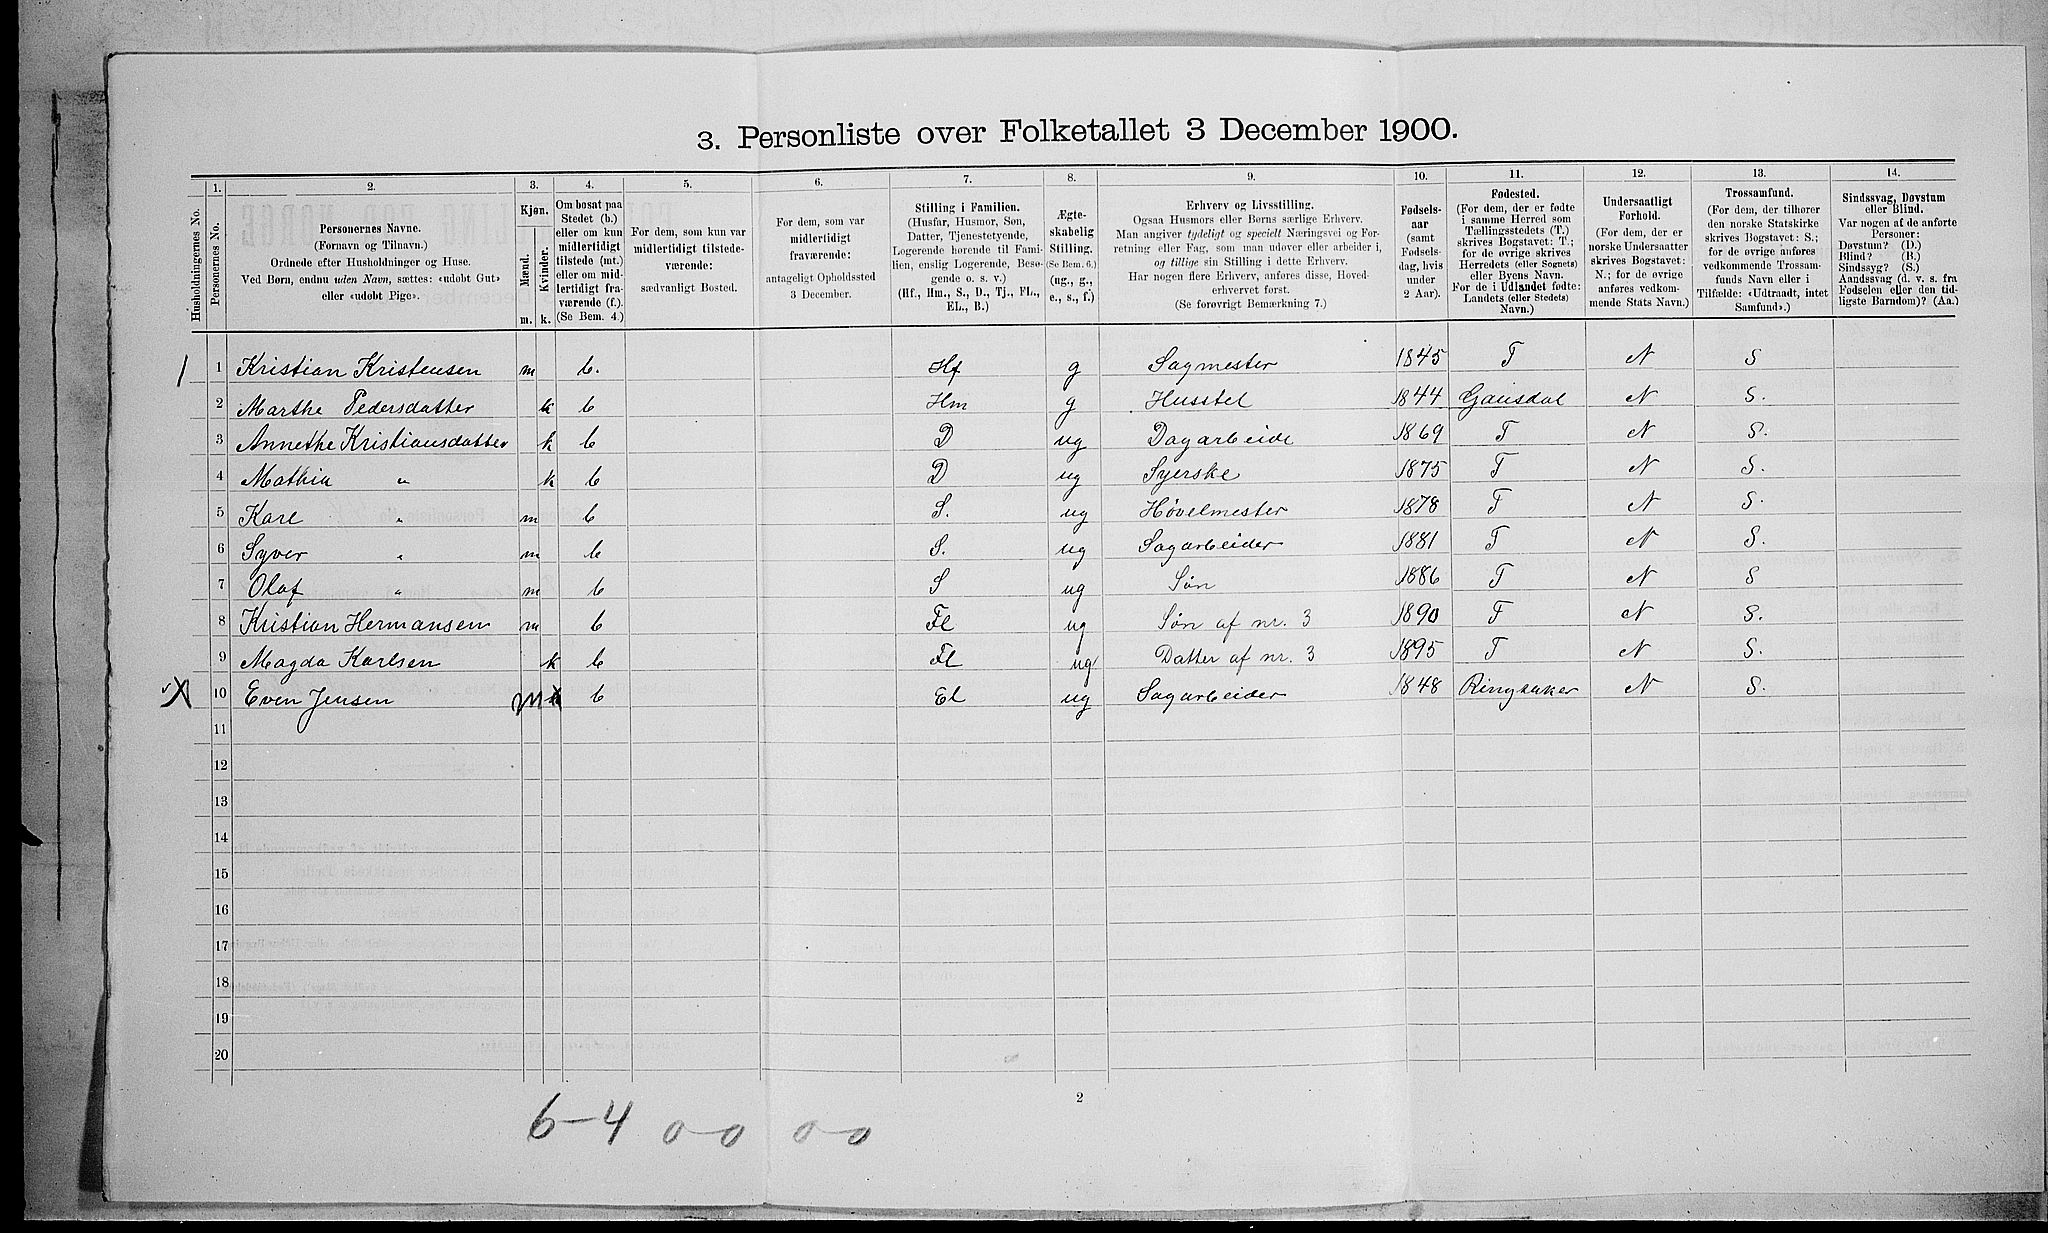 3. Personliste over Folketallet 3 December 1900.
1. 2. 3. 4. 5. 6. 7. 8. 9. 10. 11. 12. 13. 14.
Husholdningernes No.
Personernes No.
Personernes Navne.
(Fornavn og Tilnavn.)
Ordnede efter Husholdninger og Huse.
Ved Børn, endnu uden Navn, sættes: «udøbt Gut»
eller «udøbt Pige».
Kjøn.
Mænd.
Kvinder.
m. k.
Om bosat paa
Stedet (b.)
eller om kun
midlertidigt
tilstede (mt.)
eller om mid-
lertidigt fra-
værende (f.).
(Se Bem. 4.)
For dem, som kun var
midlertidigt tilstede-
værende:
sædvanligt Bosted.
For dem, som var
midlertidigt
fraværende:
antageligt Opholdssted
3 December.
Stilling i Familien.
(Husfar, Husmor, Søn,
Datter, Tjenestetyende,
Logerende hørende til Fami-
lien, enslig Logerende, Besø-
gende o. s. v.)
(Hf., Hm., S., D., Tj., FL.,
EL., B.)
Ægte-
skabelig
Stilling.
(Se Bem. 6.)
(ug., g.,
e., s., f.)
Erhverv og Livsstilling.
Ogsaa Husmors eller Børns særlige Erhverv.
Man angiver tydeligt og specielt Næringsvei og For-
retning eller Fag, som man udøver eller arbeider i,
og tillige sin Stilling i dette Erhverv.
Har nogen flere Erhverv, anføres disse, Hoved-
erhvervet først.
(Se forøvrigt Bemærkning 7.)
Fødsels-
aar
(samt
Fødsels-
dag, hvis
under
2 Aar).
Fødested.
(For dem, der er fødte
i samme Herred som
Tællingsstedets (T.)
skrives Bogstavet: T.;
for de øvrige skrives
Herredets (eller Sognets)
eller Byens Navn.
For de i Udlandet fødte:
Landets (eller Stedets)
Navn.)
Undersaatligt
Forhold.
(For dem, der er
norske Undersaatter
skrives Bogstavet:
N.; for de øvrige
anføres vedkom-
mende Stats Navn.)
Trossamfund.
(For dem, der tilhører
den norske Statskirke
skrives Bogstavet: S.;
for de øvrige anføres
vedkommende Trossam-
funds Navn eller i
Tilfælde: «Udtraadt, intet
Samfund».)
Sindssvag, Døvstum
eller Blind.
Var nogen af de anførte
Personer:
Døvstum? (D.)
Blind? (B.)
Sindssyg? (S.)
Aandssvag (d. v. s. fra
Fødselen eller den tid-
ligste Barndom)? (Aa.)
1 1 Kristian Kristensen m b. Hf g Sagmester 1845 T N S
2 Marthe Pedersdatter k b Hm g Husstel 1844 Gausdal N S.
3 Annethe Kristiansdatter k b D ug Dagarbeide 1869 T N S.
4 Mathia " k b D ug Syerske 1875 T N S.
5 Karl " m b S. ug Høvelmester 1878 T N S.
6 Syver " m b S. ug Sagarbeider 1881 T N S.
7 Olaf " m b S ug Søn 1886 T N S
8 Kristian Hermansen m b Fl ug Søn af nr. 3 1890 T N S.
9 Magda Karlsen k b Fl ug Datter af nr. 3 1895 T N S.
X 10 Even Jensen m k b El ug Sagarbeider 1848 Ringsaker N S.
11
12
13
14
15
16
17
18
19
20
2
6-4 0-0 0-0